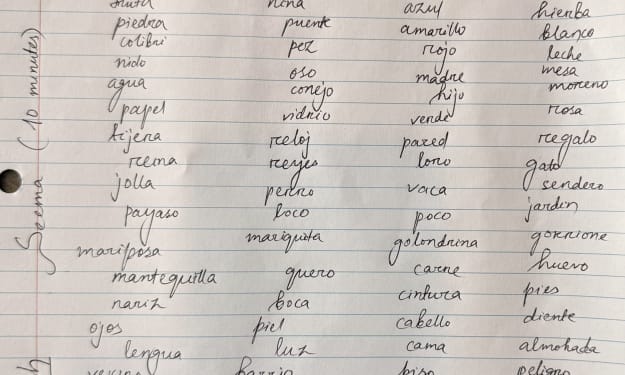 azul hierba
piedra puente amarillo blanco
colibri pez rojo leche
nido oso madre mesa
agua conejo hijo moreno
papel vidrio verde rosa
tijera reloj pared regalo
rema reyes loro gato
jolla perro vaca sendero
payaso loco poco jardin
mariposa mariquita golondrina gorrione
mantequilla quero carne huevo
nariz boca cintura pies
ojos piel cabello diente
lengua luz cama almohada
barrio piso peligro
Seema (10 minutes)